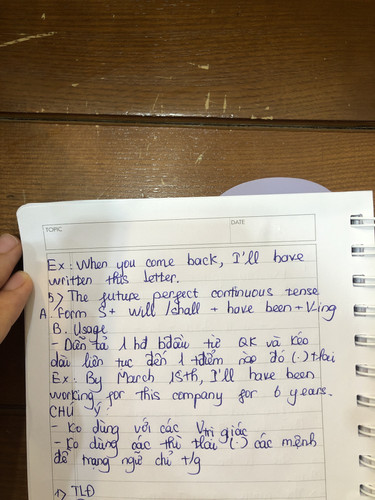 TOPIC
DATE
Ex: When you come back, I'll have
written this letter.
5> The future perfect continuous tense
A. Form S + will /shall + have been + V-ing
B. Usage
- Diễn tả 1 hđ bđầu từ QK và kéo
dài liên tục đến 1 tđiểm nào đó (.) tlai
Ex: By March 15th, I'll have been
working for this company for 6 years.
CHÚ Ý:
- Ko dùng với các V tri giác
- Ko dùng các thì tlai (.) các mệnh
đề trạng ngữ chỉ t/g
1> TLĐ